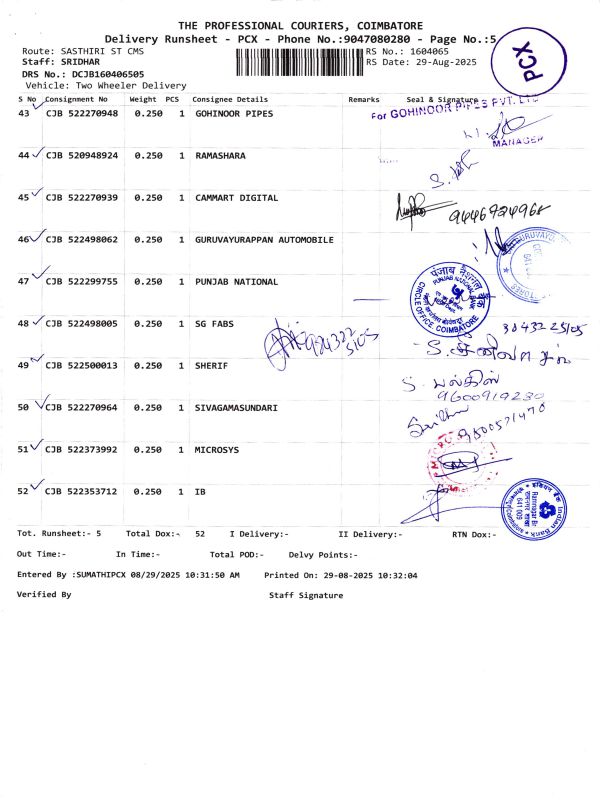 THE PROFESSIONAL COURIERS, COIMBATORE
Delivery Runsheet - PCX - Phone No.:9047080280 - Page No.:5
PCX
Route: SASTHIRI ST CMS
RS No.: 1604065
Staff: SRIDHAR
RS Date: 29-Aug-2025
DRS No.: DCJB160406505
Vehicle: Two Wheeler Delivery
S No Consignment No Weight PCS Consignee Details Remarks Seal & Signature
43 CJB 522270948 0.250 1 GOHINOOR PIPES
For GOHINOOR PIPES PVT. LTD
MANAGER
44 CJB 520948924 0.250 1 RAMASHARA
45 CJB 522270939 0.250 1 CAMMART DIGITAL
9446724968
46 CJB 522498062 0.250 1 GURUVAYURAPPAN AUTOMOBILE
47 CJB 522299755 0.250 1 PUNJAB NATIONAL
पंजाब नैशनल बैंक
PUNJAB NATIONAL BANK
CIRCLE OFFICE COIMBATORE
48 CJB 522498005 0.250 1 SG FABS
3043225105
49 CJB 522500013 0.250 1 SHERIF
9600919230
50 CJB 522270964 0.250 1 SIVAGAMASUNDARI
9500571470
51 CJB 522373992 0.250 1 MICROSYS
52 CJB 522353712 0.250 1 IB
Indian Bank
Ramnagar Br
641 009
Tot. Runsheet:- 5 Total Dox:- 52 I Delivery:- II Delivery:- RTN Dox:-
Out Time:- In Time:- Total POD:- Delvy Points:-
Entered By :SUMATHIPCX 08/29/2025 10:31:50 AM Printed On: 29-08-2025 10:32:04
Verified By Staff Signature